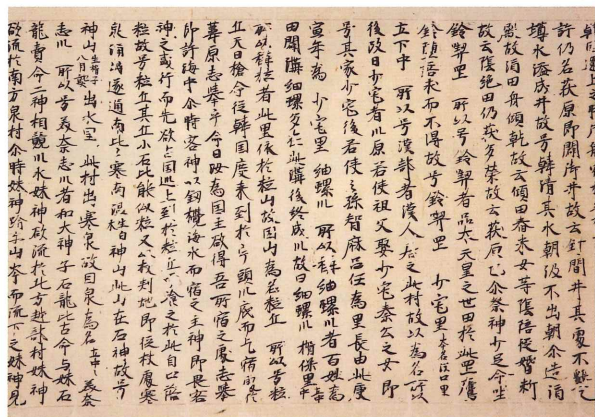 韓国還上之時御船宿於
許仍名萩原即闢御井故云針間井其処不墾又
墫水溢成井故号韓清水其水朝汲不出朝尓造酒
殿故云酒田舟傾乾故云傾田舂米女等陰陪従婚断
故云陰絶田仍萩多栄故云萩原也尓祭神少足命坐
鈴喫里所以号鈴喫者品太天皇之世田於此里鷹
鈴堕落求而不得故号鈴喫里少宅里本名漢部里
土下中所以号漢部者漢人居之此村故以為名所以
後改曰少宅者川原若狭祖父娶少宅秦公之女即
号其家少宅後若狭之孫智麻呂任為里長由此庚
寅年為少宅里細螺川所以称細螺川者百姓為
田闢溝細螺多在此溝後終成川故曰細螺川揖保里土中中
所以称粒者此里依於粒山故因山為名粒丘所以号粒
丘者天日槍命従韓国度来到於宇頭川底而乞宿処於
葦原志挙乎命曰汝為国主欲得吾所宿之処志挙
即許海中尓時客神以剣攪海水而宿之主神即畏客
神之盛行而先欲占国巡上到於粒丘而飡之於此自口落
粒故号粒丘其丘小石比能似粒又以杖刺地即従杖処寒
泉涌出遂通南北々寒南温生白朮神山此山在石神故号
神山生椎子八月熟出水里此村出寒泉故因泉為名土中々美奈
志川所以号美奈志川者伊和大神子石龍比古命与妹石
龍売命二神相競川水妹神欲流於北方越部村妹神
欲流於南方泉村尓時妹神踰山岑而流下之妹神見